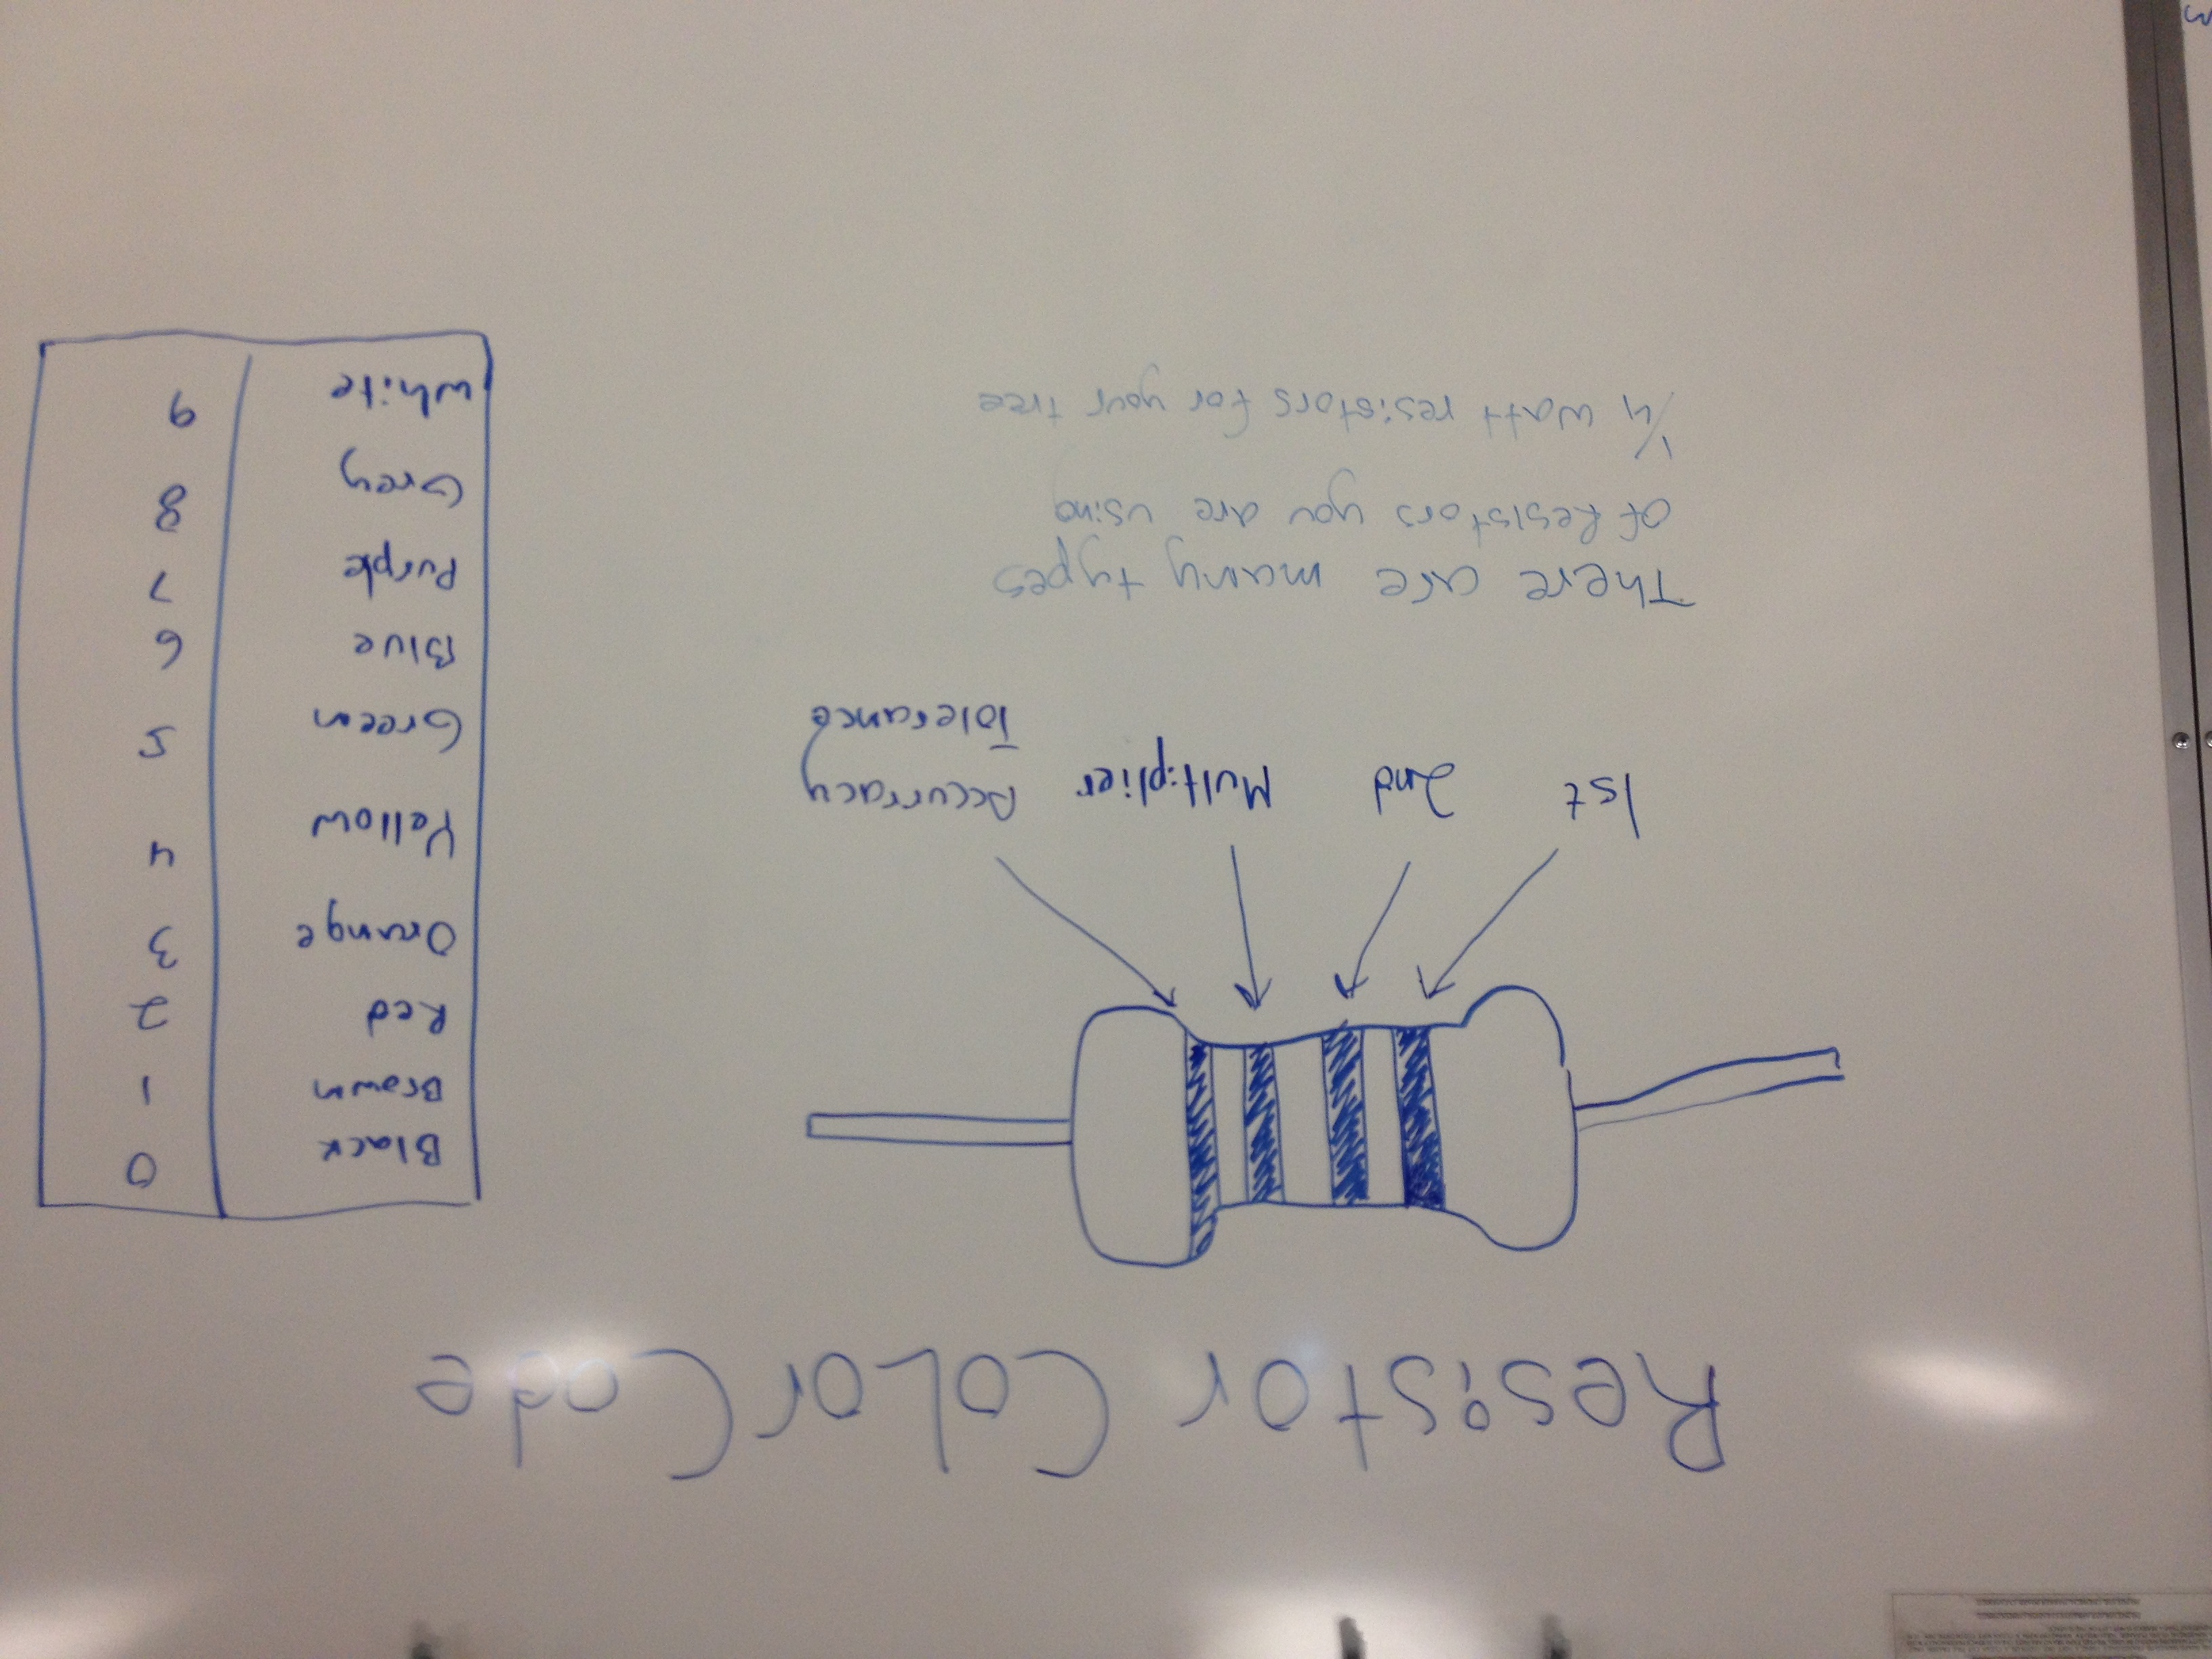 Resistor Color Code
1st 2nd Multiplier Accurracy
Tolerance
There are many types
of Resistors you are using
1/4 watt resistors for your tree
Black 0
Brown 1
Red 2
Orange 3
Yellow 4
Green 5
Blue 6
Purple 7
Grey 8
white 9